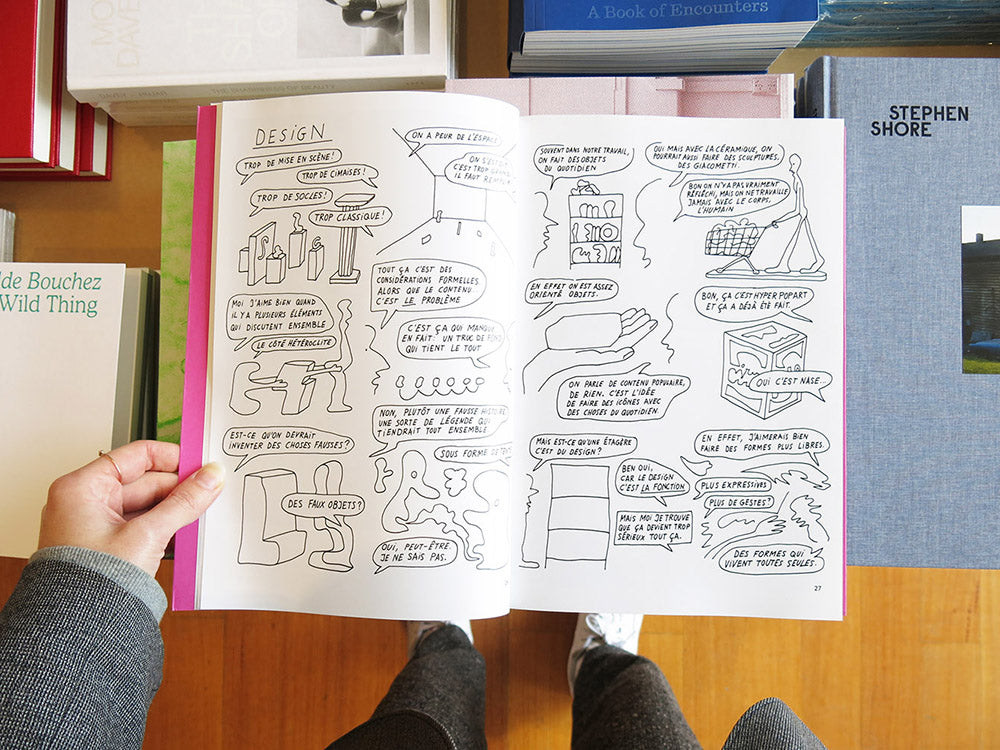 A Book of Encounters
STEPHEN
SHORE
lde Bouchez
Wild Thing
DESIGN
TROP DE MISE EN SCÈNE!
TROP DE CIMAISES!
TROP DE SOCLES!
TROP CLASSIQUE!
ON A PEUR DE L'ESPACE
ON S'EST
C'EST TROP GRAND
IL FAUT
MOI J'AIME BIEN QUAND
IL Y A PLUSIEURS ÉLÉMENTS
QUI DISCUTENT ENSEMBLE
LE CÔTÉ HÉTÉROCLITE
TOUT ÇA C'EST DES
CONSIDÉRATIONS FORMELLES
ALORS QUE LE CONTENU
C'EST LE PROBLÈME
C'EST ÇA QUI MANQUE
EN FAIT: UN TRUC DE FOND
QUI TIENT LE TOUT
EST-CE QU'ON DEVRAIT
INVENTER DES CHOSES FAUSSES?
DES FAUX OBJETS?
NON, PLUTÔT UNE FAUSSE HISTOIRE
UNE SORTE DE LÉGENDE QUI
TIENDRAIT TOUT ENSEMBLE
SOUS FORME DE
OUI, PEUT-ÊTRE.
JE NE SAIS PAS.
SOUVENT DANS NOTRE TRAVAIL,
ON FAIT DES OBJETS
DU QUOTIDIEN
OUI MAIS AVEC LA CÉRAMIQUE, ON
POURRAIT AUSSI FAIRE DES SCULPTURES,
DES GIACOMETTI.
BON ON N'Y A PAS VRAIMENT
RÉFLÉCHI, MAIS ON NE TRAVAILLE
JAMAIS AVEC LE CORPS,
L'HUMAIN
EN EFFET ON EST ASSEZ
ORIENTÉ OBJETS.
BON, ÇA C'EST HYPER POPART
ET ÇA A DÉJÀ ÉTÉ FAIT.
OUI C'EST NASE...
ON PARLE DE CONTENU POPULAIRE,
DE RIEN. C'EST L'IDÉE
DE FAIRE DES ICÔNES AVEC
DES CHOSES DU QUOTIDIEN.
MAIS EST-CE QU'UNE ÉTAGÈRE
C'EST DU DESIGN?
BEN OUI,
CAR LE DESIGN
C'EST LA FONCTION
MAIS MOI JE TROUVE
QUE ÇA DEVIENT TROP
SÉRIEUX TOUT ÇA.
EN EFFET, J'AIMERAIS BIEN
FAIRE DES FORMES PLUS LIBRES.
PLUS EXPRESSIVES
PLUS DE GESTES?
DES FORMES QUI
VIVENT TOUTES SEULES.
27